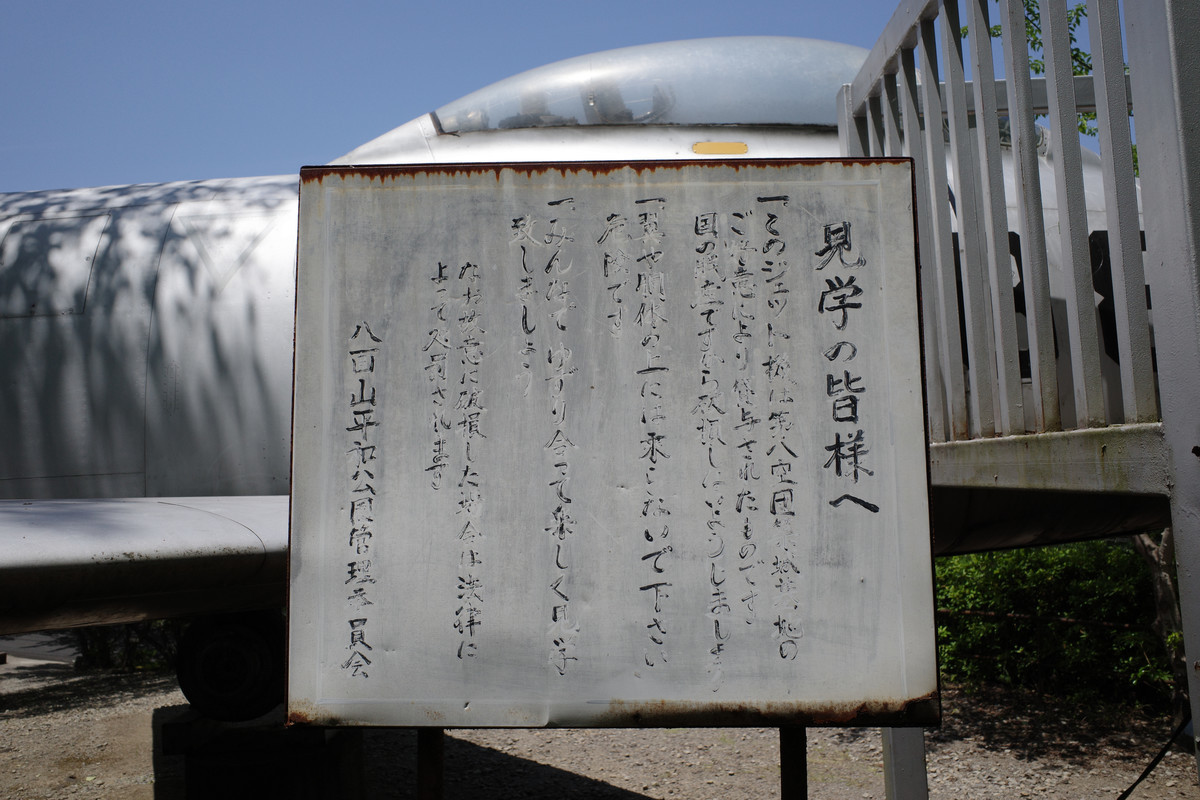 見学の皆様へ
一このジェット機は第八空団築城基地の
ご好意により貸与されたものです
国の職立てすから破損しないようしましょう
一翼や胴体の上には乗らないで下さい
危険です
一みんなでゆずり合って楽しく見学
致しましょう
なお故意に破損した場合は法律に
よって処罰されます
八百山平和公園管理委員会